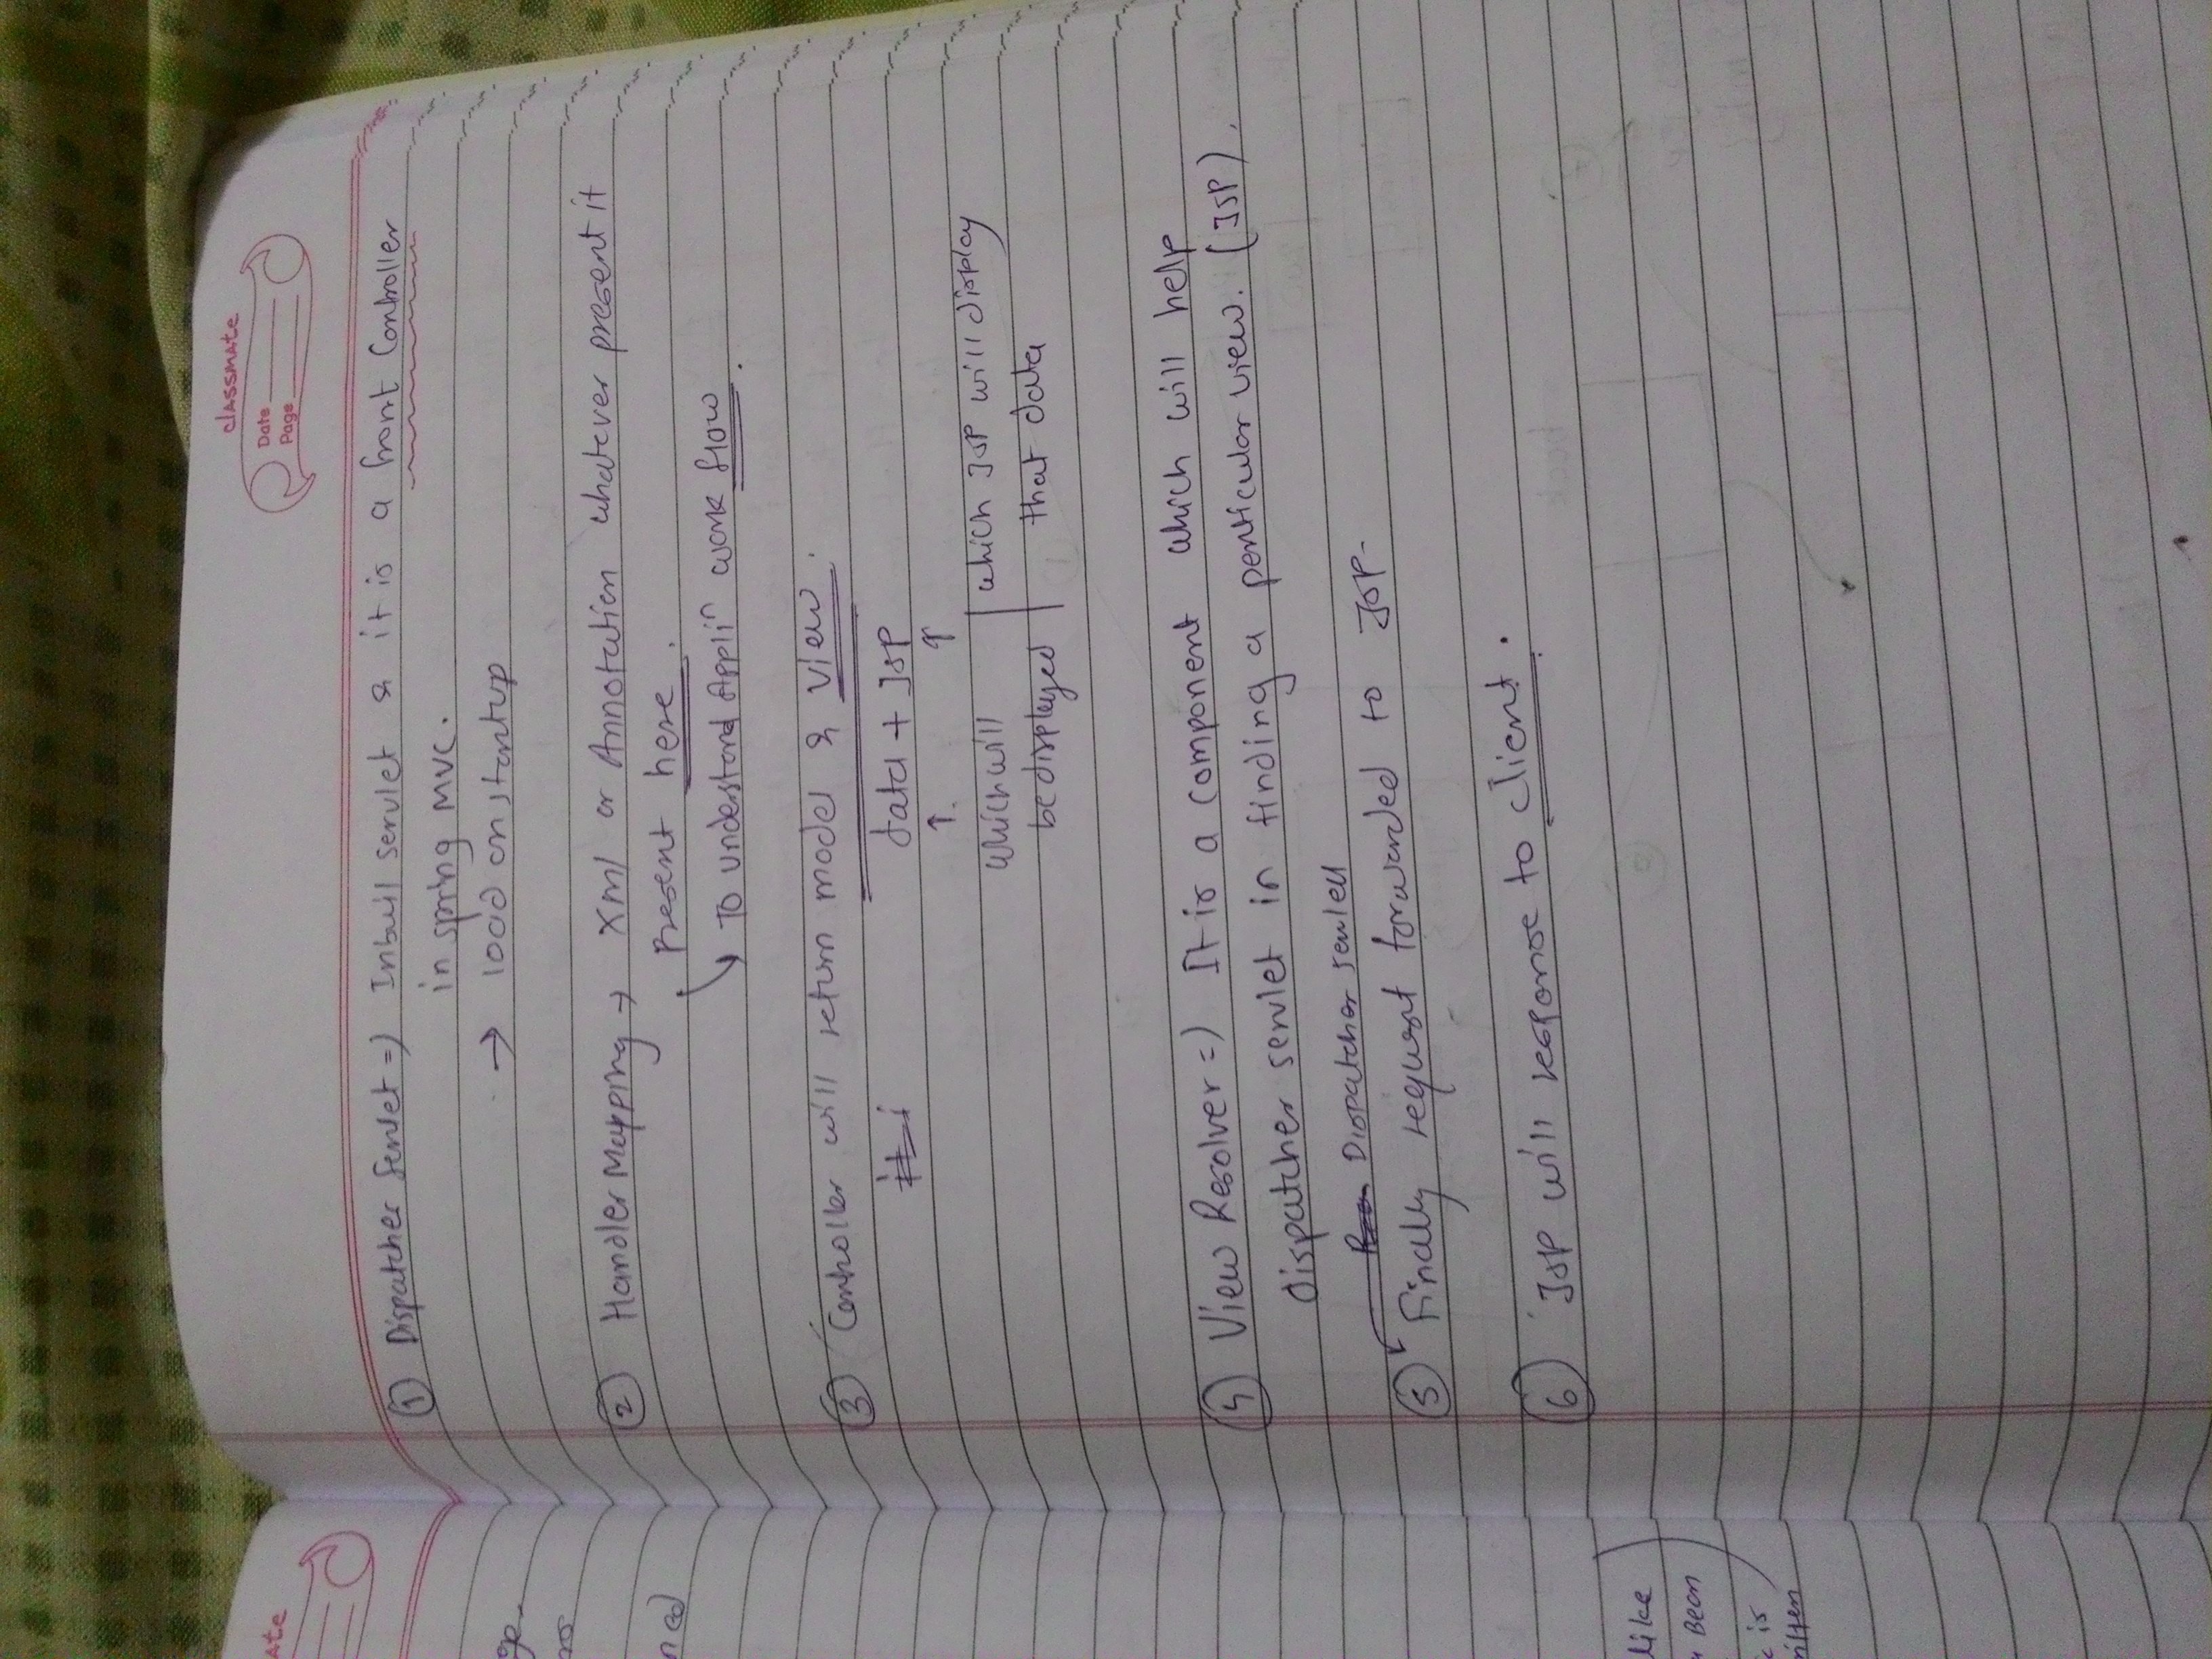 ATE
ge.
ns
ned
like
Bean
is
ritten
classmate
Date
Page
① Dispatcher Servlet => Inbuil servlet & it is a front Controller
in spring MVC.
→ load on startup
② Handler Mapping → Xml or Annotation whatever present it
present here.
↳ To understand Appliⁿ work flow.
③ Controller will return model & view.
data + JSP
↑ ↑
which will | which JSP will display
be displayed | that data
④ View Resolver => It is a component which will help
dispatcher servlet in finding a perticular view. (JSP).
Dispatcher servlet
⑤ Finally request forwarded to JSP-
⑥ JSP will response to client.